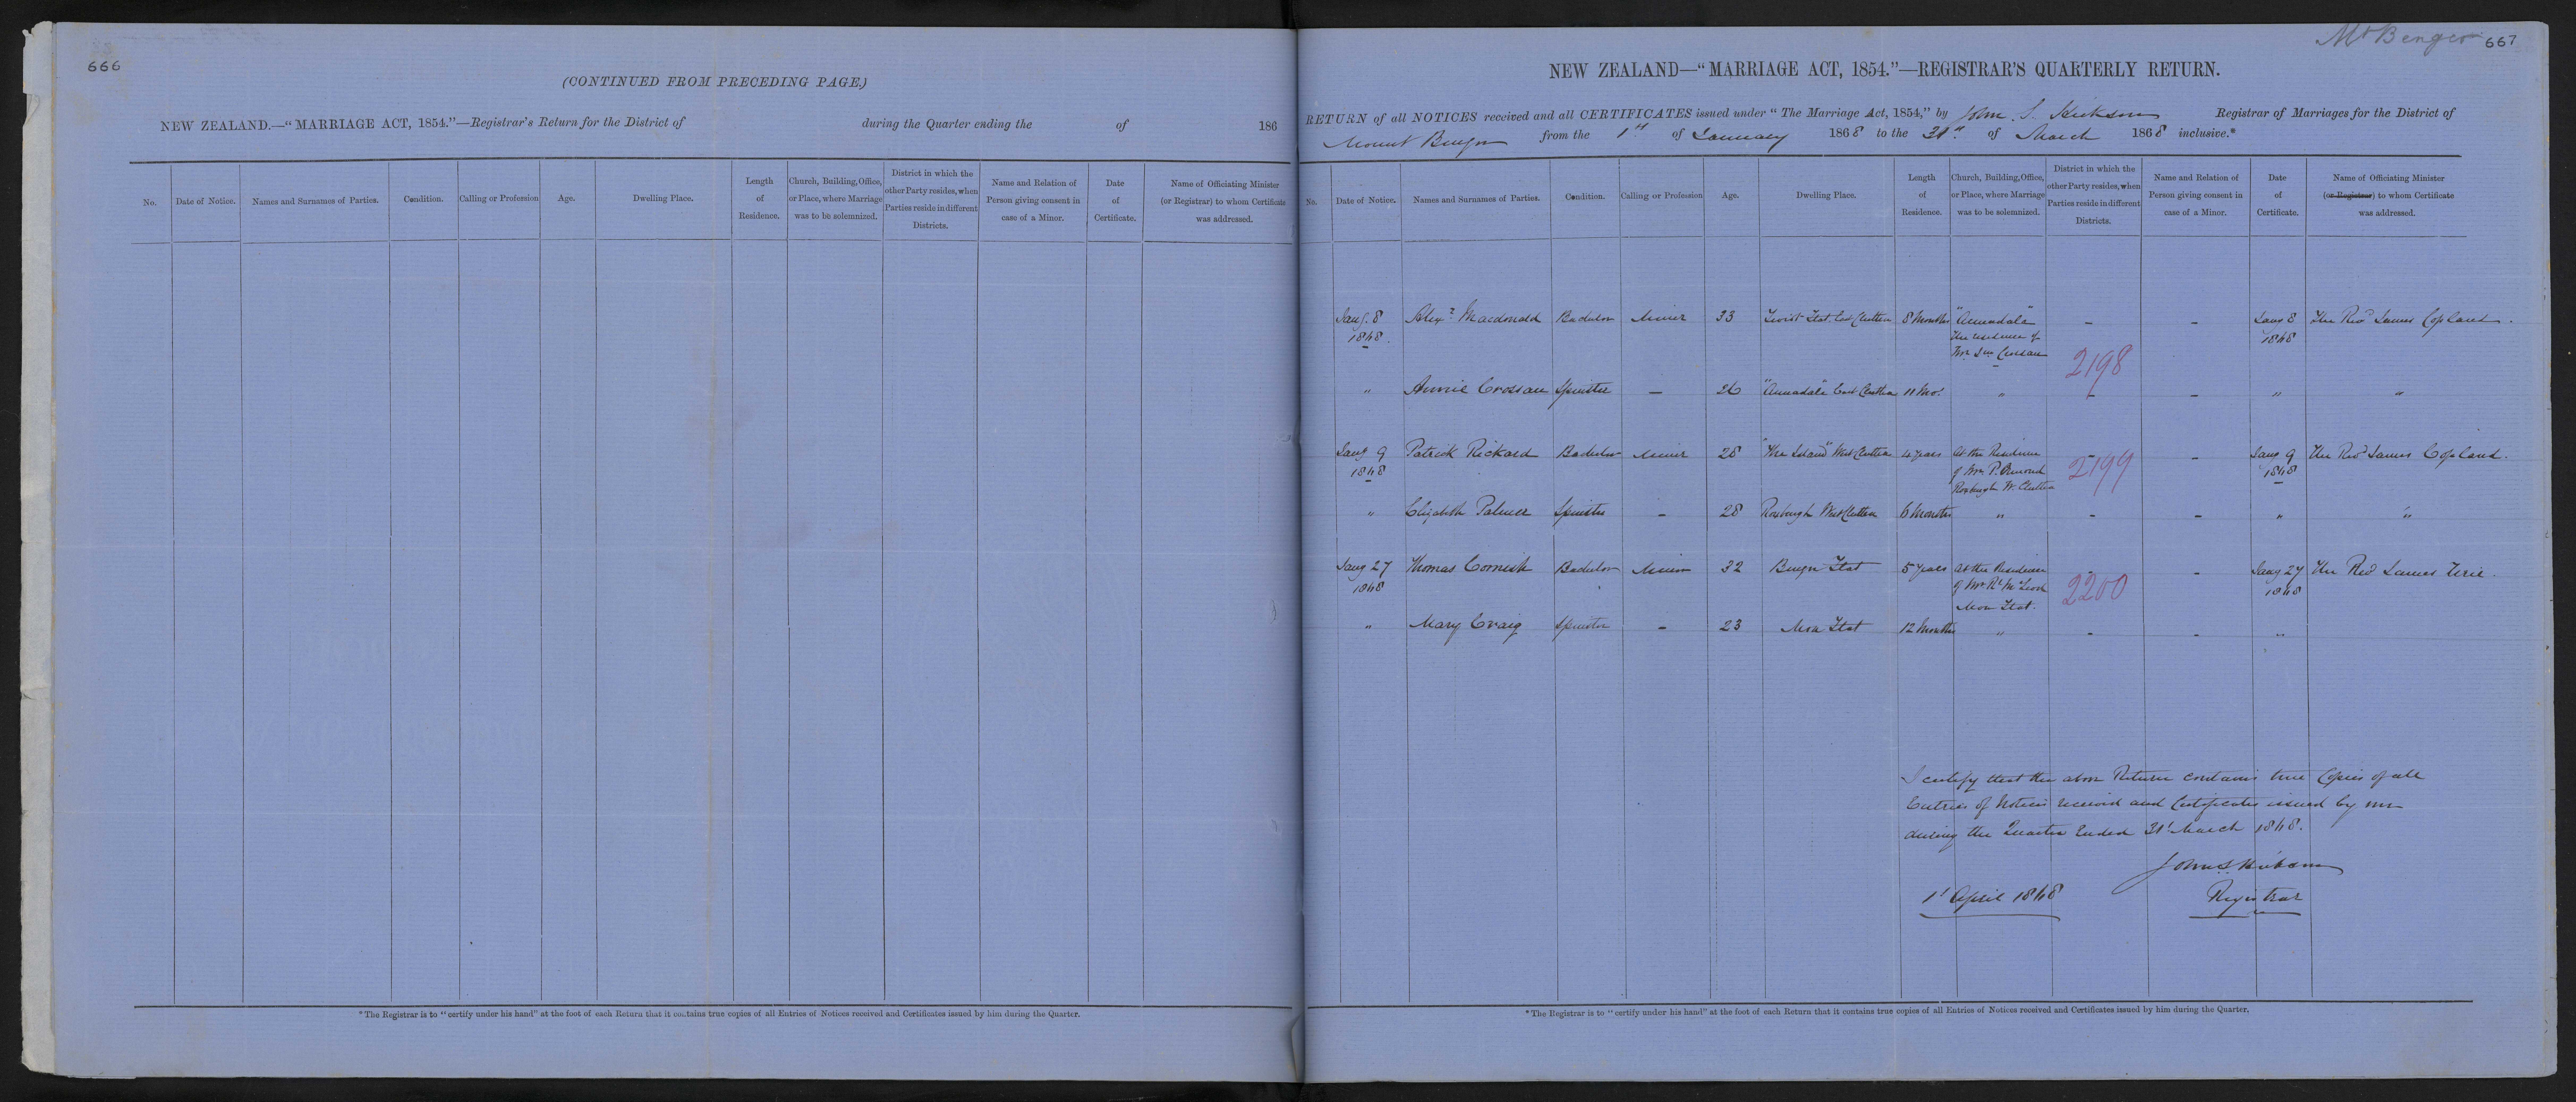 666
(CONTINUED FROM PRECEDING PAGE.)
NEW ZEALAND.—“MARRIAGE ACT, 1854.”—Registrar's Return for the District of during the Quarter ending the of 186
No. Date of Notice. Names and Surnames of Parties. Condition. Calling or Profession Age. Dwelling Place. Length of Residence. Church, Building, Office, or Place, where Marriage was to be solemnized. District in which the other Party resides, when Parties reside in different Districts. Name and Relation of Person giving consent in case of a Minor. Date of Certificate. Name of Officiating Minister (or Registrar) to whom Certificate was addressed.
* The Registrar is to “certify under his hand” at the foot of each Return that it contains true copies of all Entries of Notices received and Certificates issued by him during the Quarter.
Mt Benger 667
NEW ZEALAND—“MARRIAGE ACT, 1854.”—REGISTRAR'S QUARTERLY RETURN.
RETURN of all NOTICES received and all CERTIFICATES issued under “The Marriage Act, 1854,” by John S. Hickson Registrar of Marriages for the District of
Mount Benger from the 1st of January 1868 to the 31st of March 1868 inclusive.*
No. Date of Notice. Names and Surnames of Parties. Condition. Calling or Profession Age. Dwelling Place. Length of Residence. Church, Building, Office, or Place, where Marriage was to be solemnized. District in which the other Party resides, when Parties reside in different Districts. Name and Relation of Person giving consent in case of a Minor. Date of Certificate. Name of Officiating Minister (or Registrar) to whom Certificate was addressed.
Jany. 8 Alexr Macdonald Bachelor Miner 33 Teviot Flat East Clutha 8 Months "Annandale" – – Jany 8 The Revd James Copland.
1868. The residence of 1868
Mr Crossan
2198
" Annie Crossan Spinster – 26 "Annadale" East Clutha 11 Mos " – – " "
Jany 9 Patrick Rickard Bachelor Miner 28 "The Island" West Clutha 4 years At the Residence – – Jany 9 The Revd James Copland.
1868 of Mr P. Ormond 2199 1868
Roxburgh W. Clutha
" Elizabeth Palmer Spinster – 28 Roxburgh West Clutha 6 Months " – – " "
Jany 27 Thomas Cornish Bachelor Miner 32 Benger Flat 5 years At the Residence – – Jany 27 The Revd James Urie.
1868 of Mr Rt McLeod 2200 1868
Moa Flat.
" Mary Craig Spinster – 23 Moa Flat 12 Months " – – "
I certify that the above Return contains true Copies of all
Entries of Notices received and Certificates issued by me
during the Quarter Ended 31st March 1868.
John S Hickson
1st April 1868 Registrar
* The Registrar is to “certify under his hand” at the foot of each Return that it contains true copies of all Entries of Notices received and Certificates issued by him during the Quarter.